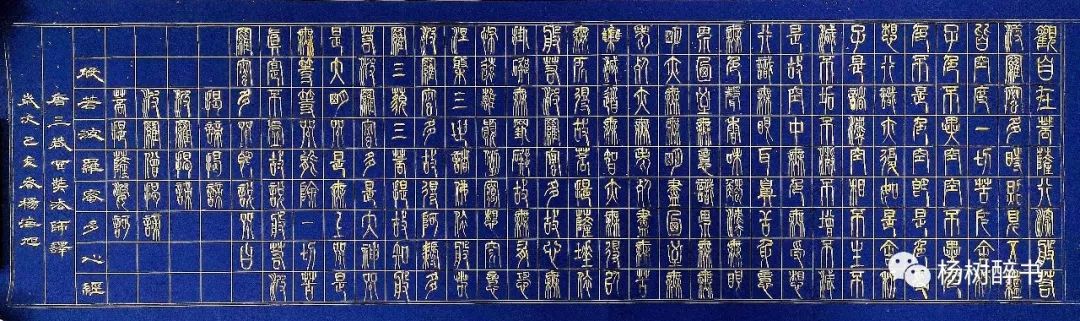 觀自在菩薩行深般若
波羅蜜多時照見五蘊
皆空度一切苦厄舍利
子色不異空空不異色
色即是空空即是色受
想行識亦復如是舍利
子是諸法空相不生不
滅不垢不淨不增不減
是故空中無色無受想
行識無眼耳鼻舌身意
無色聲香味觸法無眼
界乃至無意識界無無
明亦無無明盡乃至無
老死亦無老死盡無苦
集滅道無智亦無得以
無所得故菩提薩埵依
般若波羅蜜多故心無
罣礙無罣礙故無有恐
怖遠離顛倒夢想究竟
涅槃三世諸佛依般若
波羅蜜多故得阿耨多
羅三藐三菩提故知般
若波羅蜜多是大神咒
是大明咒是無上咒是
無等等咒能除一切苦
真實不虛故說般若波
羅蜜多咒即說咒曰
揭諦揭諦
波羅揭諦
波羅僧揭諦
菩提薩婆訶
般若波羅蜜多心經
唐三藏玄奘法師譯
歲次己亥春楊
杨树醉书